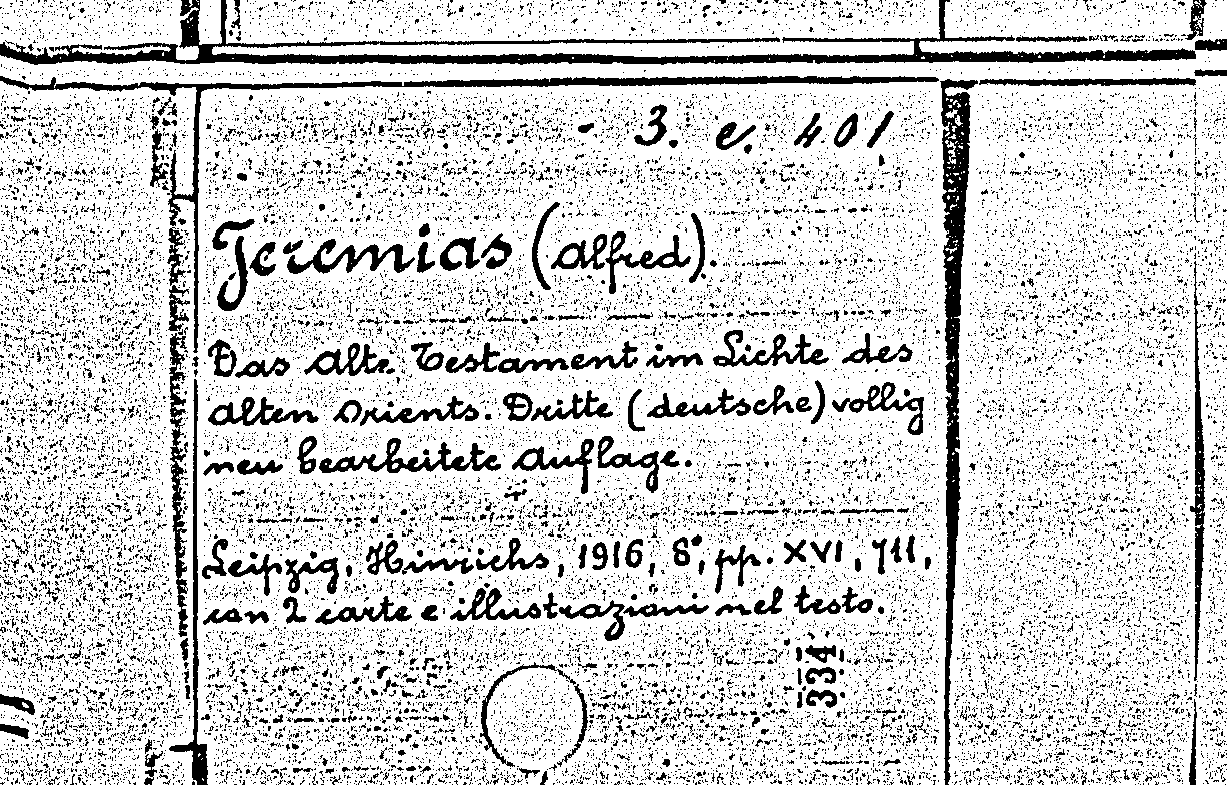 - 3. e. 401
Jeremias (Alfred).
Das Alte Testament im Lichte des
Alten Orients. Dritte (deutsche) vollig
neu bearbeitete Auflage.
Leipzig, Hinrichs, 1916, 8°, pp. XVI, 711,
con 2 carte e illustrazioni nel testo.
334